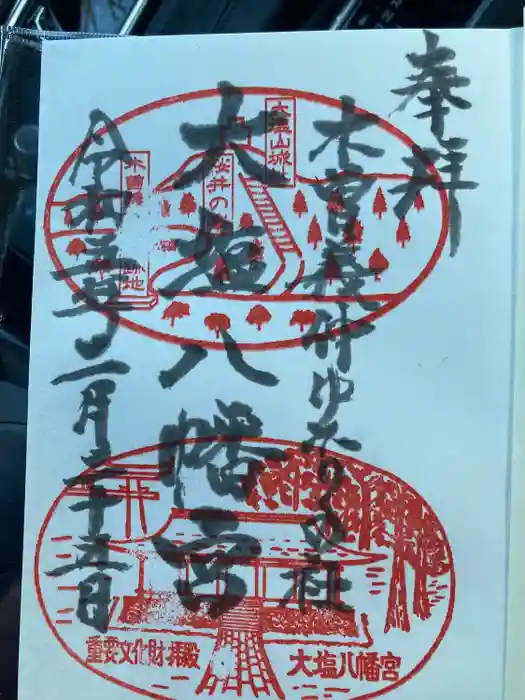 奉拝
木曽義仲ゆかりのお社
大塩八幡宮
令和三年二月二十五日
大塩山城
桜井の
木曽
跡地
重要文化財拝殿
大塩八幡宮